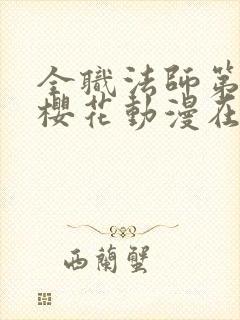 全職法師第
櫻花動漫在
西蘭蟹